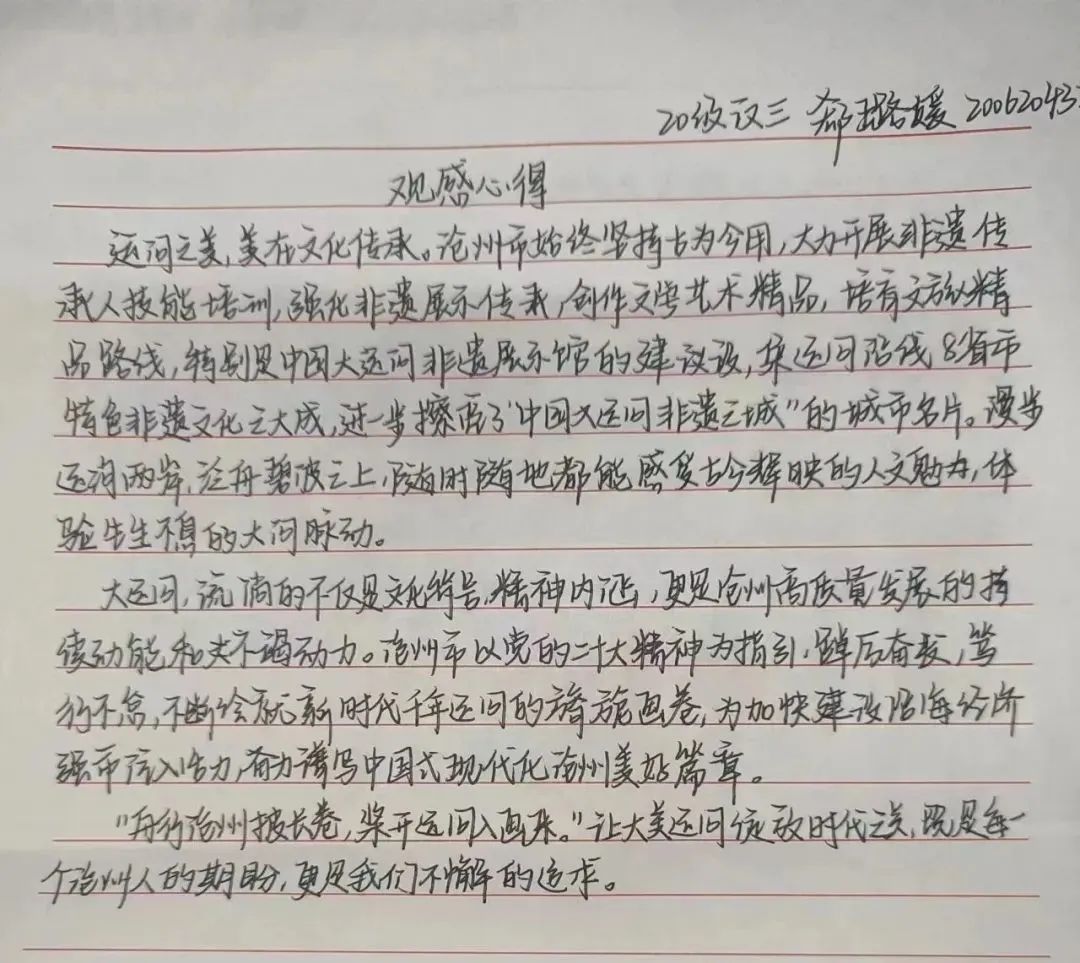 20级汉三 郗璐媛 20062043
观感心得
运河之美,美在文化传承。沧州市始终坚持古为今用,大力开展非遗传
承人技能培训,强化非遗展示传承,创作文学艺术精品,培育文旅精
品路线,特别是中国大运河非遗展示馆的建议设,集运河沿线8省市
特色非遗文化之大成,进一步擦亮了“中国大运河非遗之城”的城市名片。漫步
运河两岸,泛舟碧波之上,随时随地都能感受古今辉映的人文魅力,体
验生生不息的大河脉动。
大运河,流淌的不仅是文化符号,精神内涵,更是沧州高质量发展的持
续动能和永不竭动力。沧州市以党的二十大精神为指引,踔厉奋发,笃
行不怠,不断绘就新时代千年运河的旖旎画卷,为加快建设沿海经济
强市注入活力,奋力谱写中国式现代化沧州美好篇章。
“舟行沧州披长卷,桨开运河入画来。”让大美运河绽放时代之美,既是每一
个沧州人的期盼,更是我们不懈的追求。